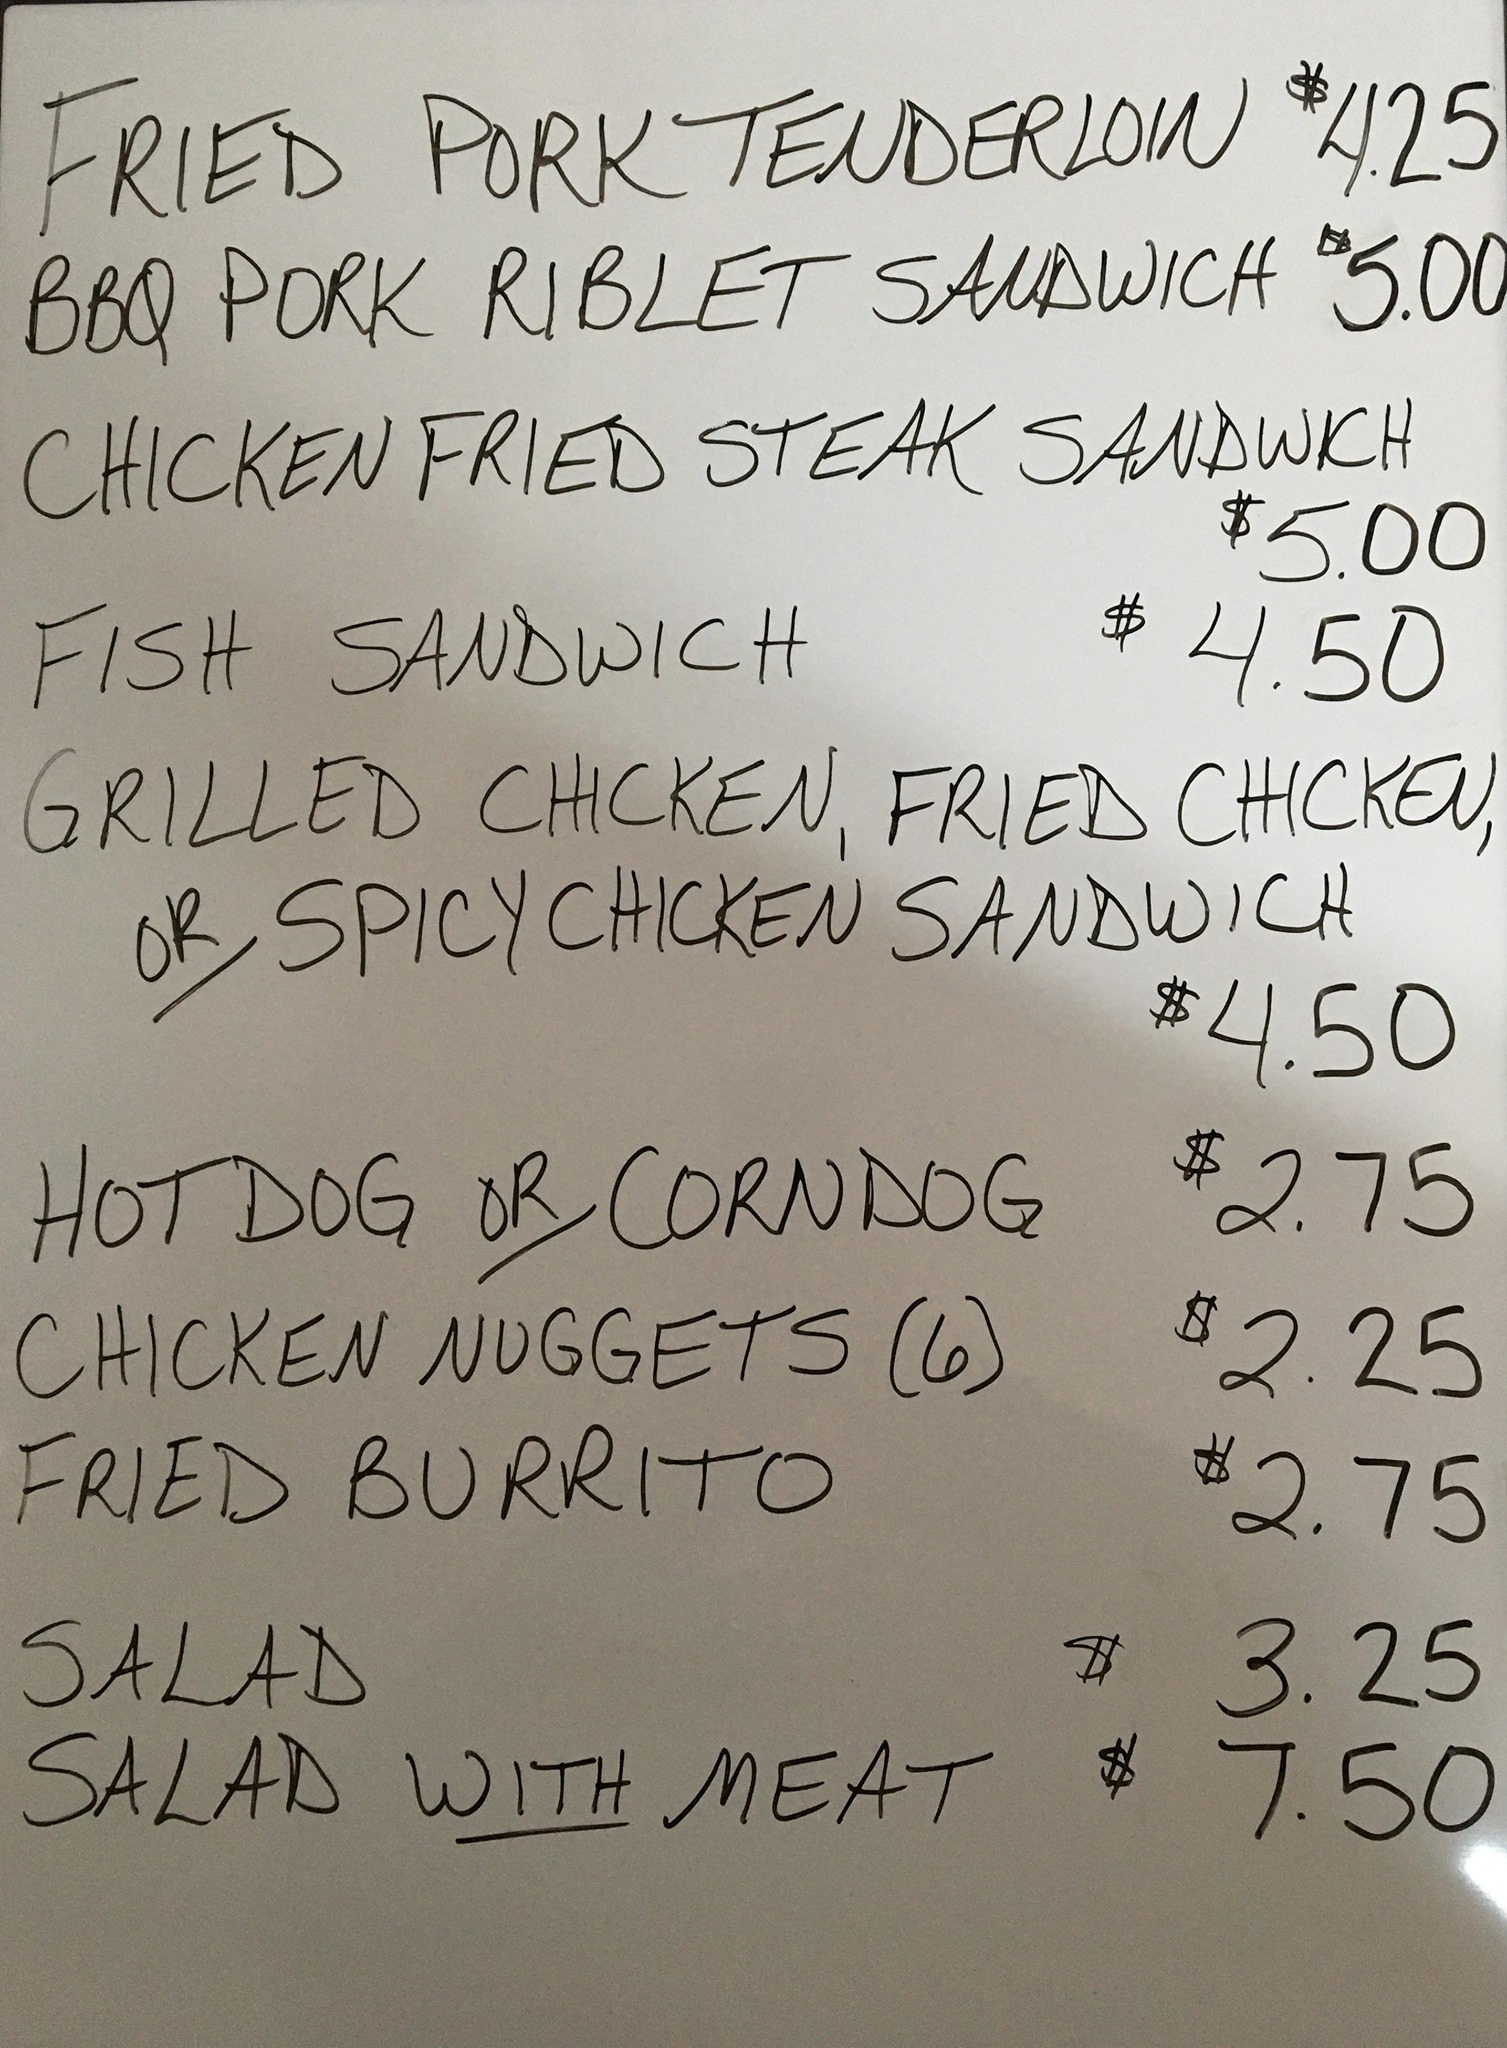 FRIED PORK TENDERLOIN $4.25
BBQ PORK RIBLET SANDWICH $5.00
CHICKEN FRIED STEAK SANDWICH
$5.00
FISH SANDWICH $ 4.50
GRILLED CHICKEN, FRIED CHICKEN,
OR SPICY CHICKEN SANDWICH
$4.50
HOT DOG OR CORNDOG $2.75
CHICKEN NUGGETS (6) $2.25
FRIED BURRITO $2.75
SALAD $ 3.25
SALAD WITH MEAT $ 7.50